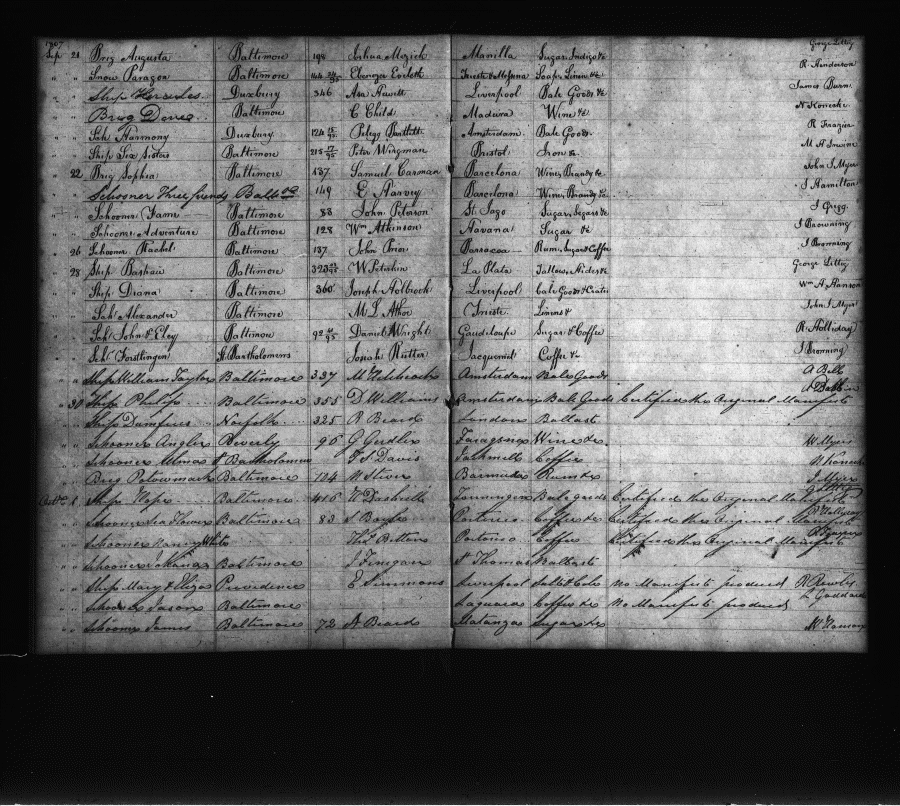 1807 George Litty
Sep 21 Brig Augusta Baltimore 198 Manilla Sugar, Indigo &c
" " Snow Paragon Baltimore 144 Ebenezer Soap, Linen &c R Henderson
" " Ship Hercules Duxbury 346 Asa Hewitt Liverpool Bale Goods &c James Burn
" " Brig Dove Baltimore C Child Madeira Wine &c
" " Sch Harmony Duxbury 124 Pelegg Bartlett Amsterdam Bale Goods R Frazier
" " Ship Six Sisters Baltimore 215 Peter Wirgman Bristol Iron &c
" 22 Brig Sophia Baltimore 137 Samuel Carman Barcelona Wine, Brandy &c John S Myer
" " Schooner Three friends Balto 149 E Harvey Barcelona Wine, Brandy &c J Hamilton
" " Schooner Fame Baltimore 88 John Peterson St Jago Sugar, Segars &c J Gregg
" " Schooner Adventure Baltimore 128 Wm Atkinson Havana Sugar &c J Browning
" 26 Schooner Rachel Baltimore 137 John Prior Barracoa Rum, Sugar & Coffee J Browning
" 28 Ship Bashaw Baltimore 323 W Peterkin La Plata Tallow, Hides &c George Litty
" " Ship Diana Baltimore 360 Joseph Holbrook Liverpool Bale Goods & Crates Wm A Hanson
" " Sch Alexander Baltimore M L Athor Trieste Linens & John S Myer
" " Sch John & Elcy Baltimore 92 Daniel Wright Gaudeloupe Sugar & Coffee R Holliday
" " Sch Forstlingen St Bartholomews Josiah Rutter Jacquemel Coffee &c J Browning
" " Ship William Taylor Baltimore 337 Amsterdam Bale Goods A Bell
" 30 Ship Philip Baltimore 355 D Williams Amsterdam Bale Goods Certified the Original Manifest
" " Ship Dumfries Norfolk 325 R Beard London Ballast
" " Schooner Angler Beverly 96 G Gudler Wine &c W Myers
" " Schooner St Bartholomew T S Davis Coffee
" " Brig Baltimore 124 Bermuda Rum &c
Octr 1 Ship Hope Baltimore 416 Tonningen Bale goods Certified the Original Manifest
" " Schooner Sea Flower Baltimore 83 Portorico Coffee &c Certified the Original Manifest
" " Schooner Nancy White Thos Portorico Coffee Certified the Original Manifest
" " Schooner Baltimore J Finigan St Thomas Ballast
" " Ship Mary & Eliza Providence E Simmons Liverpool Salt & Coals No Manifest produced
" " Schooner Jason Baltimore Laguara Coffee &c No Manifest produced Goddard
" " Schooner James Baltimore 72 A Beard Matanzas Sugar &c